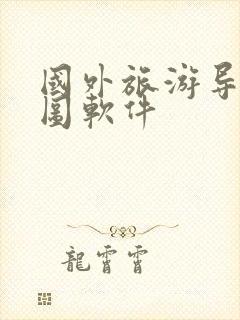 國外旅游导
圖軟件
龍霄霄